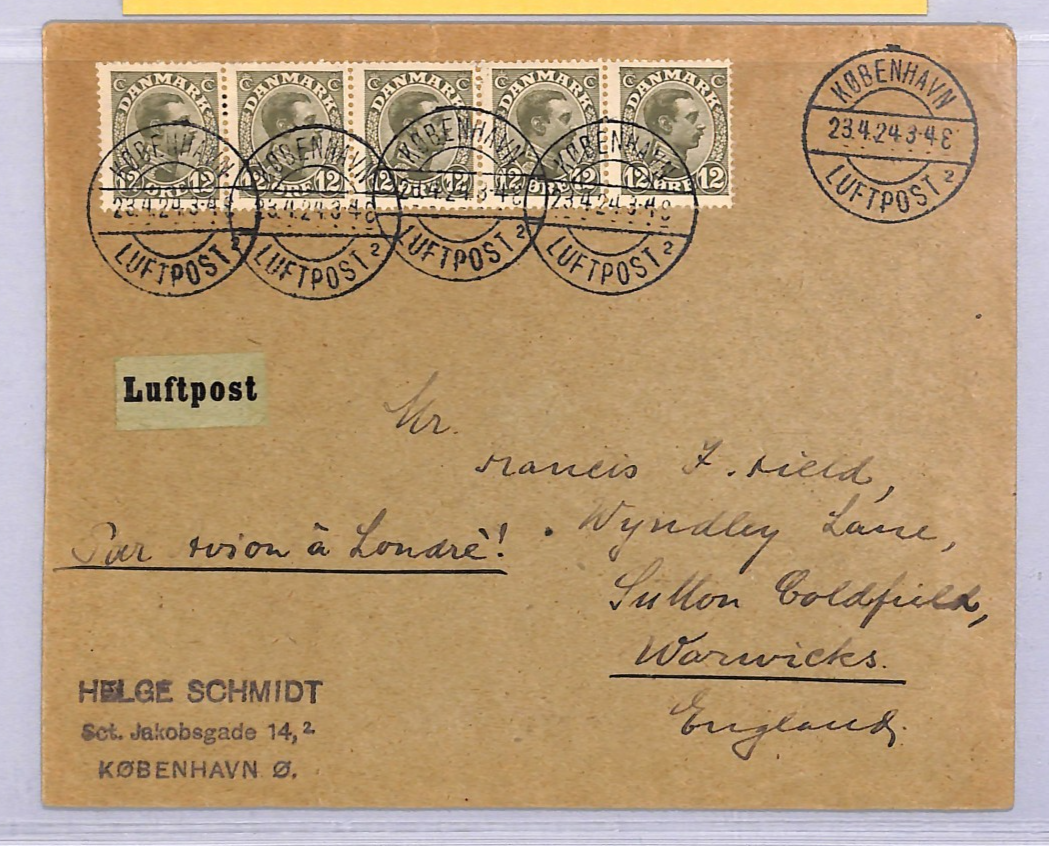 DANMARK DANMARK DANMARK DANMARK DANMARK
12 ØRE 12 12 ØRE 12 12 ØRE 12 12 ØRE 12 12 ØRE 12
KØBENHAVN
23.4.24.3-4E
LUFTPOST 2
KØBENHAVN
23.4.24.3-4E
LUFTPOST 2
KØBENHAVN
23.4.24.3-4E
LUFTPOST 2
KØBENHAVN
23.4.24.3-4E
LUFTPOST 2
KØBENHAVN
23.4.24.3-4E
LUFTPOST 2
Luftpost
Mr.
Francis F. Field,
Wyndley Lane,
Sutton Coldfield,
Warwicks.
England.
Par avion à Londrè!
HELGE SCHMIDT
Sct. Jakobsgade 14,2.
KØBENHAVN Ø.